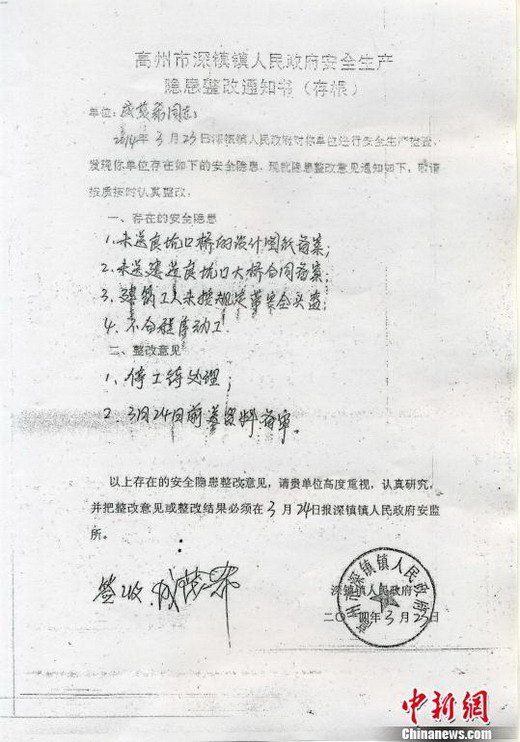 高州市深镇镇人民政府安全生产
隐患整改通知书（存根）
单位：成茂 同志：
2014年3月23日深镇镇人民政府对你单位进行安全生产检查，
发现你单位存在如下的安全隐患，现就隐患整改意见通知如下，敬请
按质按时认真整改。
一、存在的安全隐患
1.未送良坑口桥的设计图纸备案；
2.未送建造良坑口大桥合同备案；
3.建筑工人未按规定带安全头盔；
4.不向程序动工
二、整改意见
1、停工待处理；
2、3月24日前 资料备审。
以上存在的安全隐患整改意见，请贵单位高度重视，认真研究，
并把整改意见或整改结果必须在3月24日报深镇镇人民政府安监
所。
签收：成茂
深镇镇人民政府
二〇一四年3月23日
高州市深镇镇人民政府
中新网
Chinanews.com